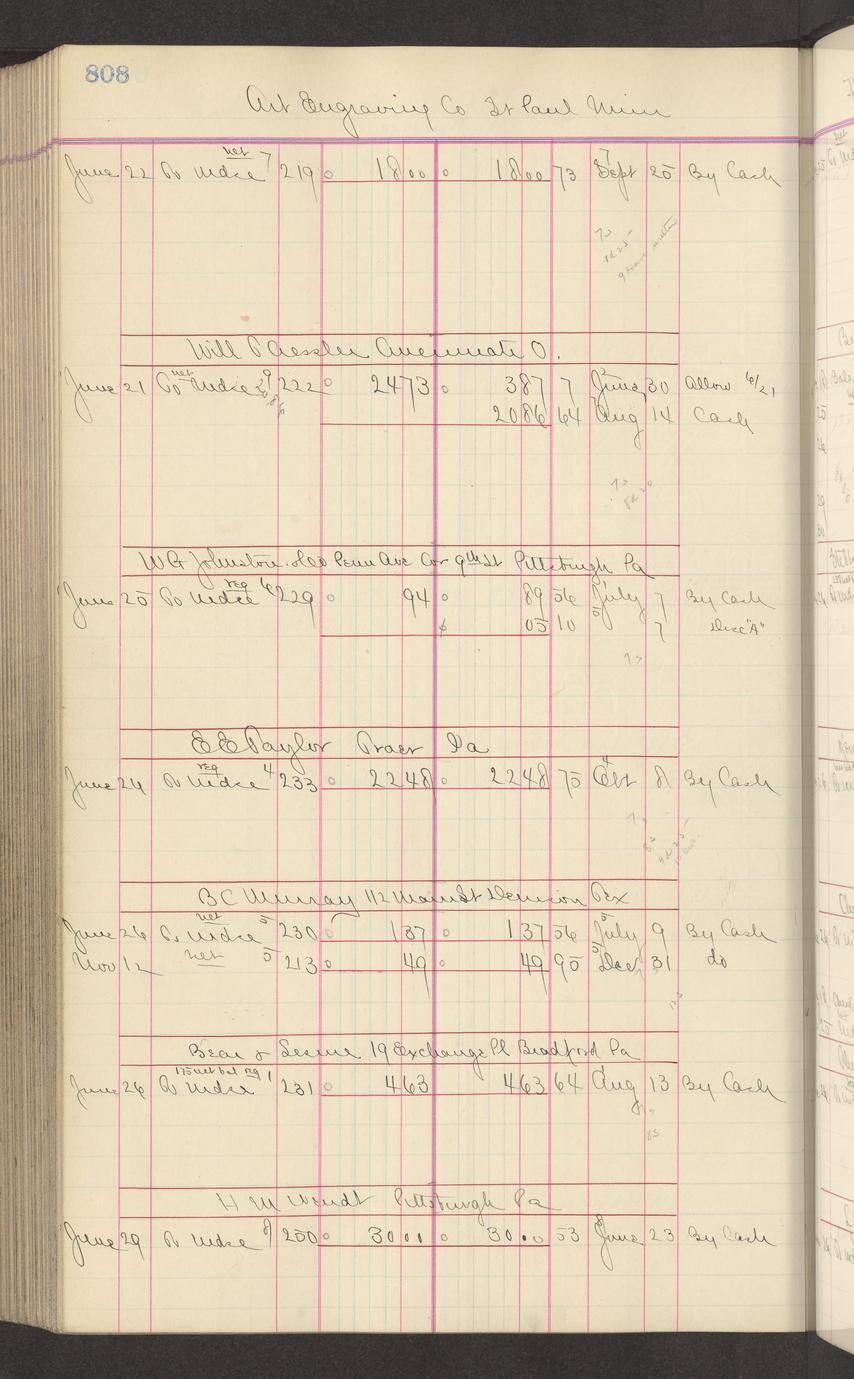 808
Art Engraving Co St Paul Minn
net 7
June 22 To Mdse 219 18 00 18 00 73 Sept 25 By Cash
Will Cincinnati O.
net 9
June 21 To Mdse 222 24 73 3 87 7 June 30 Allow 6/21
20 86 64 Aug 14 Cash
WG Johnston Penn Ave Cor 9th St Pittsburgh Pa
reg 6
June 25 To Mdse 229 94 89 56 July 7 By Cash
05 10 7 Disc "A"
E E Taylor Pa
reg 4
June 24 To Mdse 233 22 48 22 48 75 Oct 8 By Cash
B C Murray 112 Main St Denison Tex
net 5
June 26 To Mdse 230 1 37 1 37 56 July 9 By Cash
Nov 12 net 5 213 49 49 95 Dec 31 do
Bear & 19 Exchange Pl Bradford Pa
175 net bal reg 1
June 26 To Mdse 231 4 63 4 63 64 Aug 13 By Cash
H M Wendt Pittsburgh Pa
June 29 To Mdse 250 30 00 30 00 53 June 23 By Cash